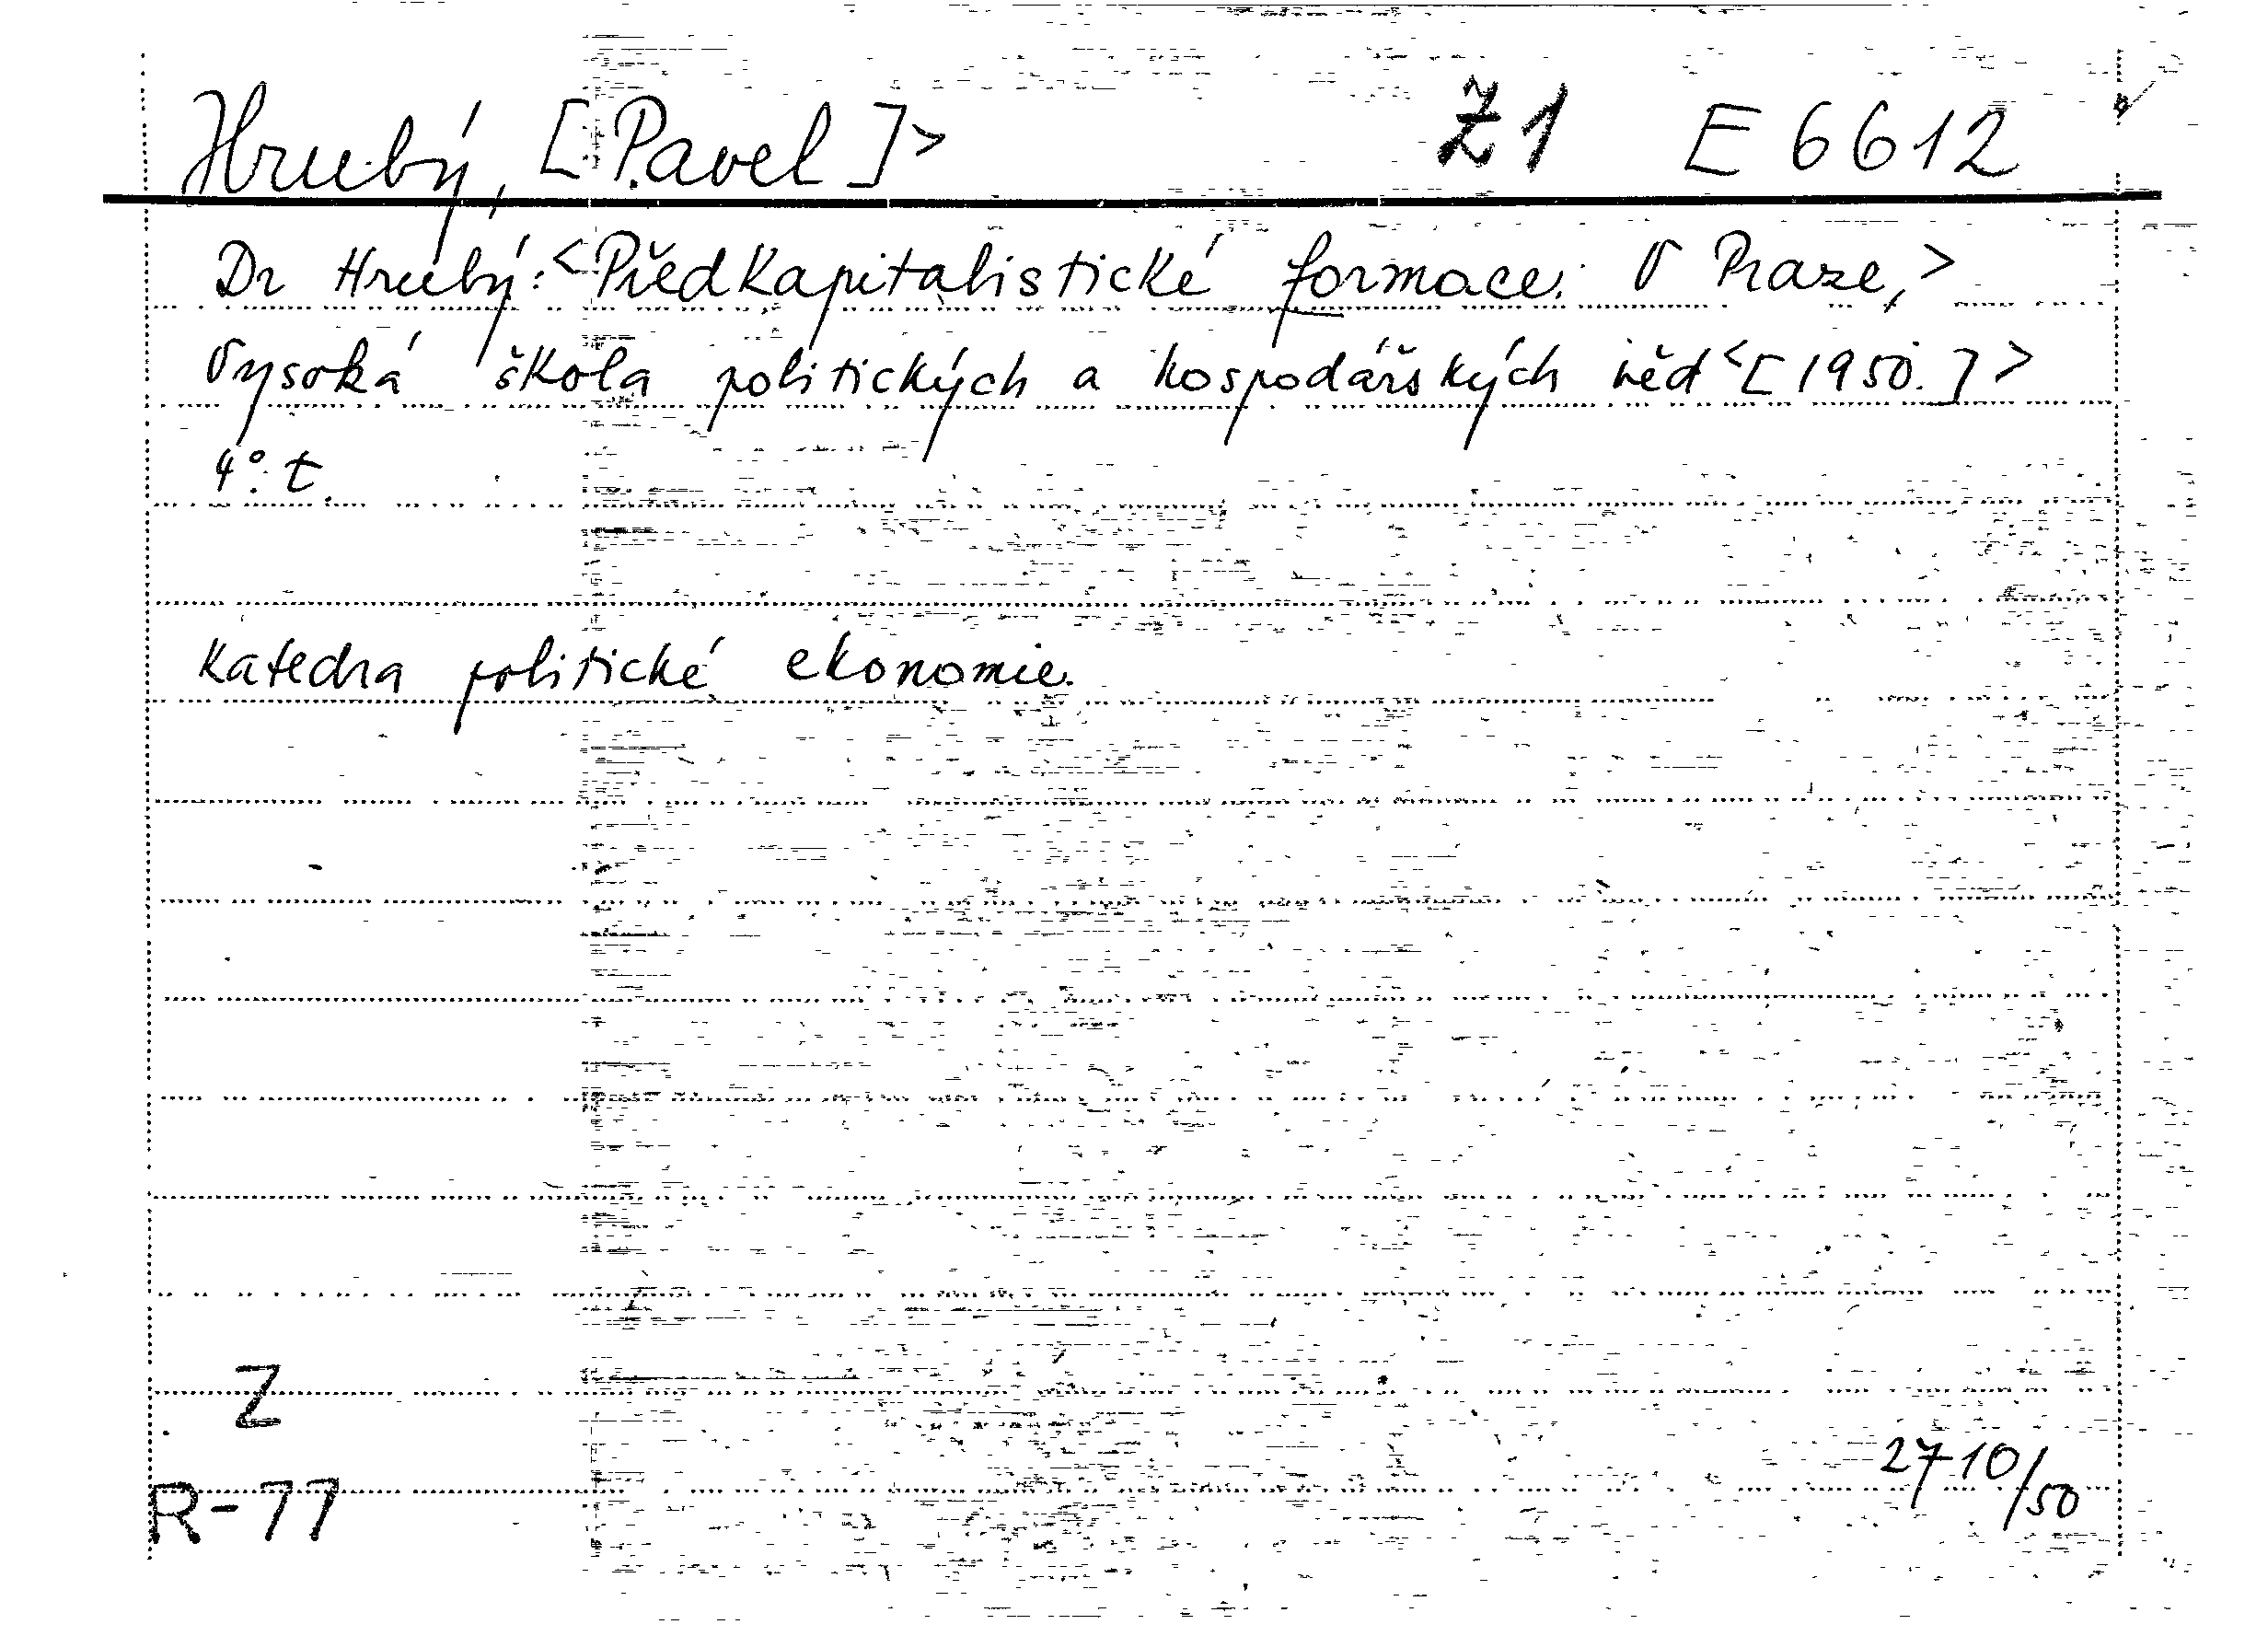 Hrubý, [Pavel]> Z1 E 6612
Dr Hrubý: <Předkapitalistické formace. V Praze,>
Vysoká škola politických a hospodářských věd <[1950.]>
4°. t.
Katedra politické ekonomie.
Z
2710/50
R-77